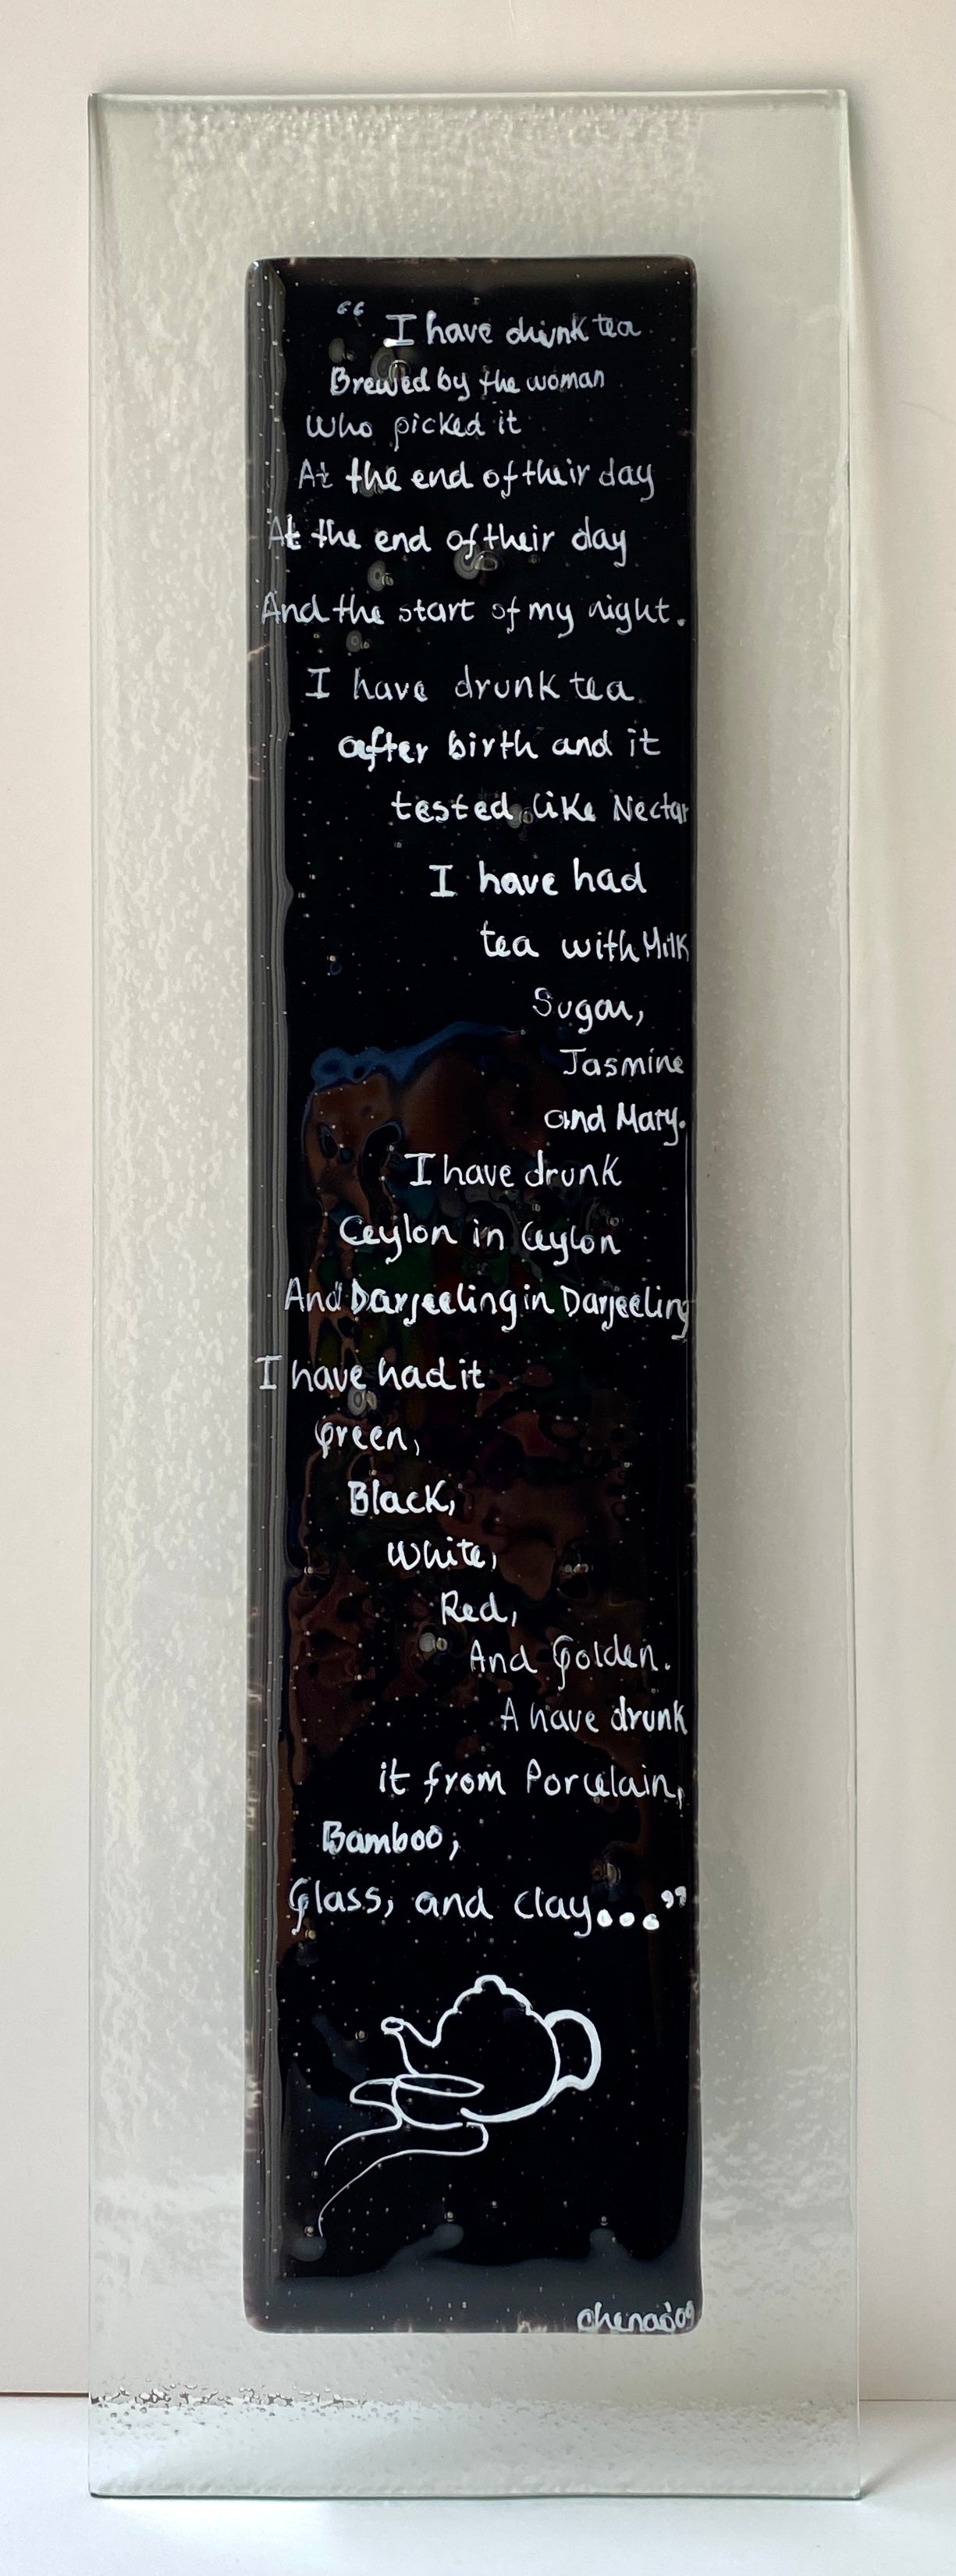 “ I have drunk tea
Brewed by the woman
Who picked it
At the end of their day
At the end of their day
And the start of my night.
I have drunk tea
after birth and it
tested like Nectar
I have had
tea with Milk
Sugar,
Jasmine
and Mary.
I have drunk
Ceylon in Ceylon
And Darjeeling in Darjeeling
I have had it
Green,
Black,
White,
Red,
And Golden.
A have drunk
it from Porcelain,
Bamboo,
Glass, and clay...”